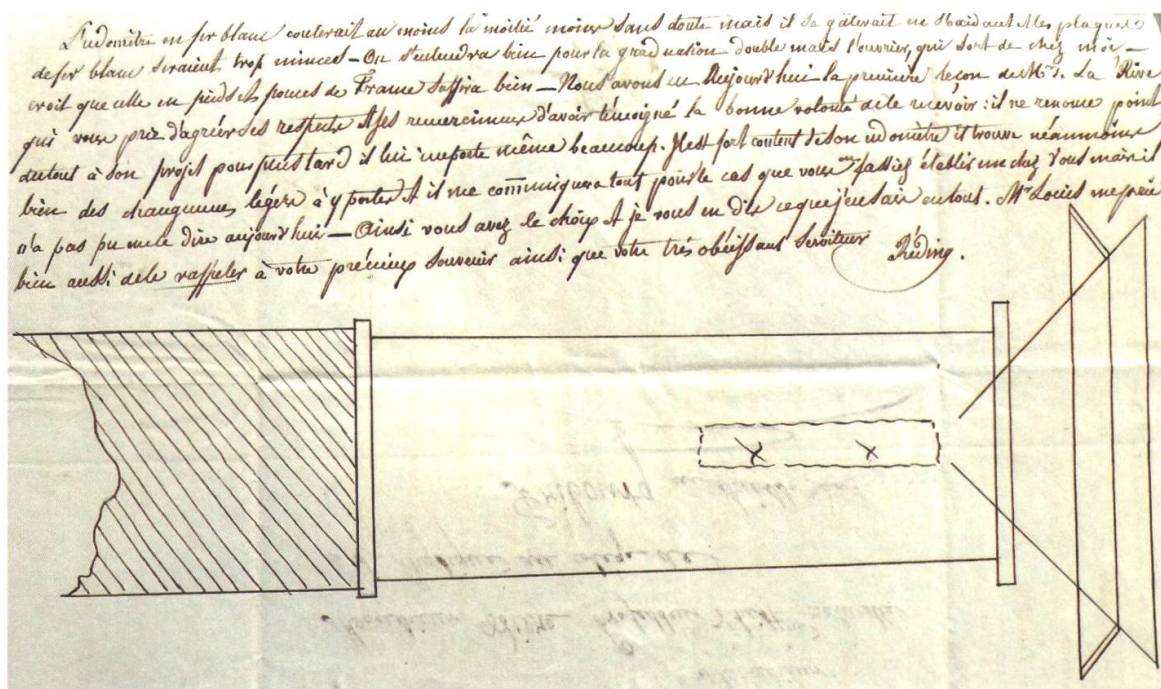 L'udomètre en fer blanc couterait au moins la moitié moins sans doute mais il se gâterait en se raidant et les plaques
de fer blanc seraient trop minces – On s'entendra bien pour la graduation double mais l'ouvrier, qui sort de chez moi –
croit que celle en pieds et pouces de France suffira bien – Nous avons eu aujourd'hui la première leçon de Mr. De La Rive
qui vous prie d'agréer ses respects et ses remerciemens d'avoir témoigné la bonne volonté de le recevoir : il ne renonce point
du tout à son projet pour plus tard il lui importe même beaucoup. Il est fort content de son udomètre et trouve néanmoins
bien des changemens légers à y porter et il me communiquera tout pour le cas que vous en fassiez établir un chez vous mais il
n'a pas pu me le dire aujourd'hui – Ainsi vous avez le choix et je vous en dis ce que j'en sais en tout. Mr Louis me prie
bien aussi de le rappeler à votre précieux souvenir ainsi que votre très obéissant serviteur Réding.
Fribourg